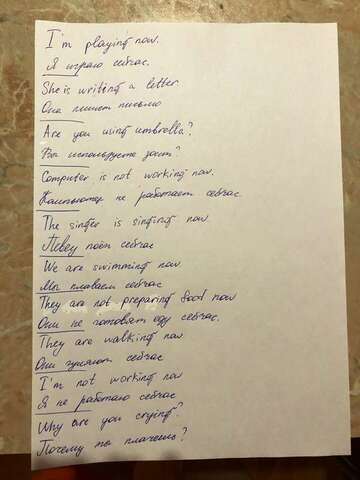 I'm playing now.
Я играю сейчас.
She is writing a letter
Она пишет письмо
Are you using umbrella?
Вы используете зонт?
Computer is not working now.
Компьютер не работает сейчас.
The singer is singing now
Певец поёт сейчас
We are swimming now
Мы плаваем сейчас
They are not preparing food now
Они не готовят еду сейчас.
They are walking now
Они гуляют сейчас
I'm not working now
Я не работаю сейчас
Why are you crying?
Почему ты плачешь?